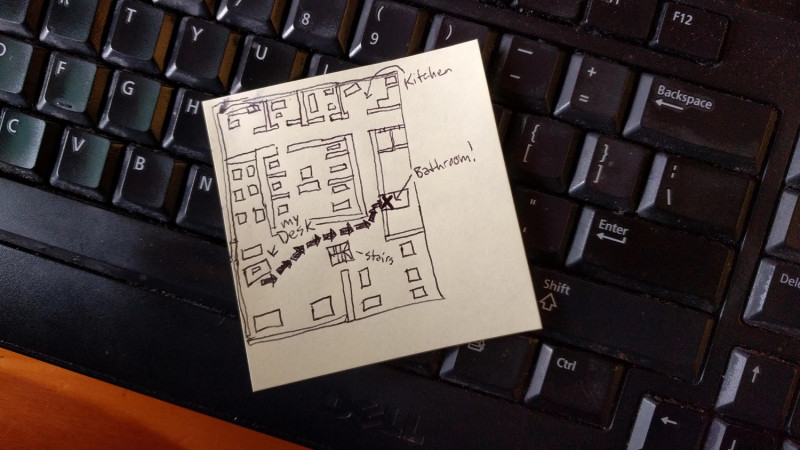 T
Y
U
8
(
9
)
F12
–
-
+
=
Backspace
D
F
G
H
{
[
}
]
C
V
B
N
|
\
"
'
Enter
Shift
Ctrl
Kitchen
Bathroom!
my
Desk
stairs
DELL